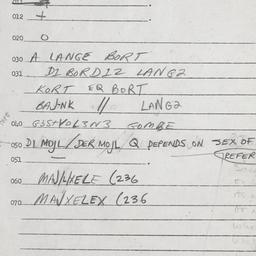 012 +
020 O
030 A LANGE BORT
031 DI BORDIZ LANGZ
KORT EQ BORT
BAJNK // LANGZ
040 GOMBE
050 DI MOJL / DER MOJL Q DEPENDS ON SEX OF
051 (REFER
060 (236
070 MAJYELEX (236